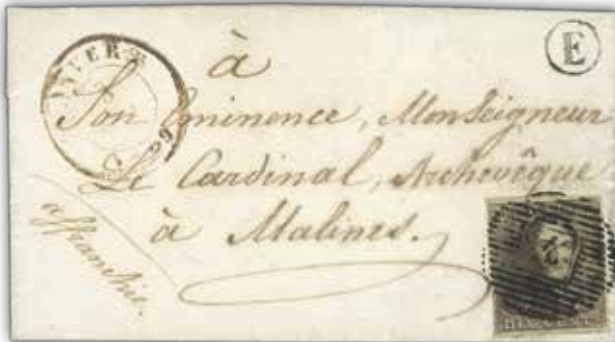 ANVERS
E
à
Son Eminence, Monseigneur
Le Cardinal, Archevêque
à Malines.
affranchie.